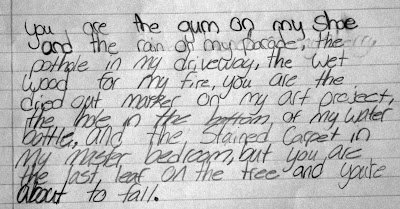 you are the gum on my shoe
and the rain on my parade, the
pothole in my driveway, the wet
wood for my fire, you are the
dried out marker on my art project,
the hole in the bottom, of my water
bottle, and the stained carpet in
my master bedroom, but you are
the last, leaf on the tree and you're
about to fall.